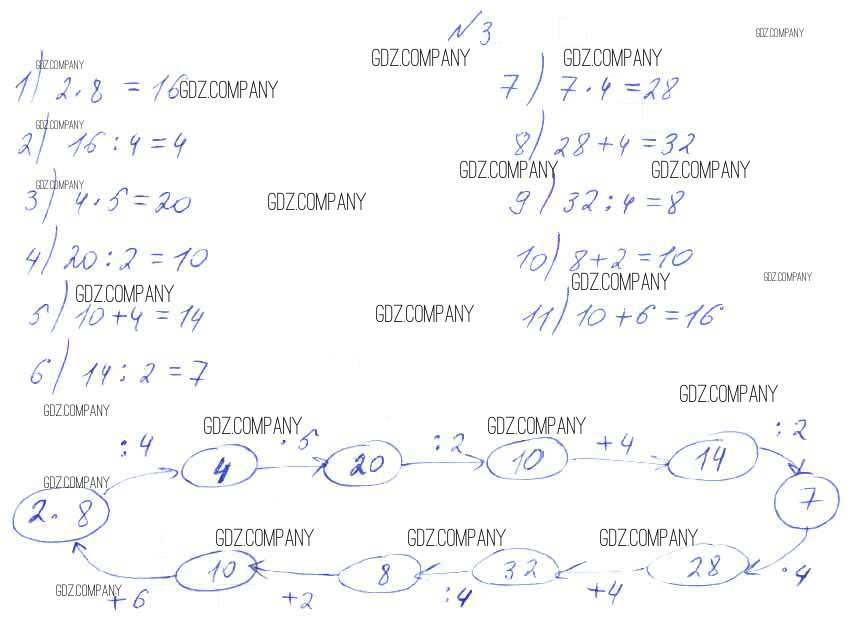 №3
GDZ.COMPANY
GDZ.COMPANY GDZ.COMPANY GDZ.COMPANY
1) 2·8 = 16 GDZ.COMPANY
7) 7·4 = 28
GDZ.COMPANY
2) 16 : 4 = 4
8) 28 + 4 = 32
GDZ.COMPANY GDZ.COMPANY GDZ.COMPANY
3) 4·5 = 20 GDZ.COMPANY
9) 32 : 4 = 8
4) 20 : 2 = 10
10) 8 + 2 = 10
GDZ.COMPANY GDZ.COMPANY GDZ.COMPANY
5) 10 + 4 = 14 GDZ.COMPANY
11) 10 + 6 = 16
6) 14 : 2 = 7
GDZ.COMPANY
GDZ.COMPANY GDZ.COMPANY GDZ.COMPANY
: 4 · 5 : 2 + 4 : 2
4 20 10 14
GDZ.COMPANY
2·8 7
GDZ.COMPANY GDZ.COMPANY GDZ.COMPANY
10 8 32 28
GDZ.COMPANY
+ 6 + 2 : 4 + 4 · 4